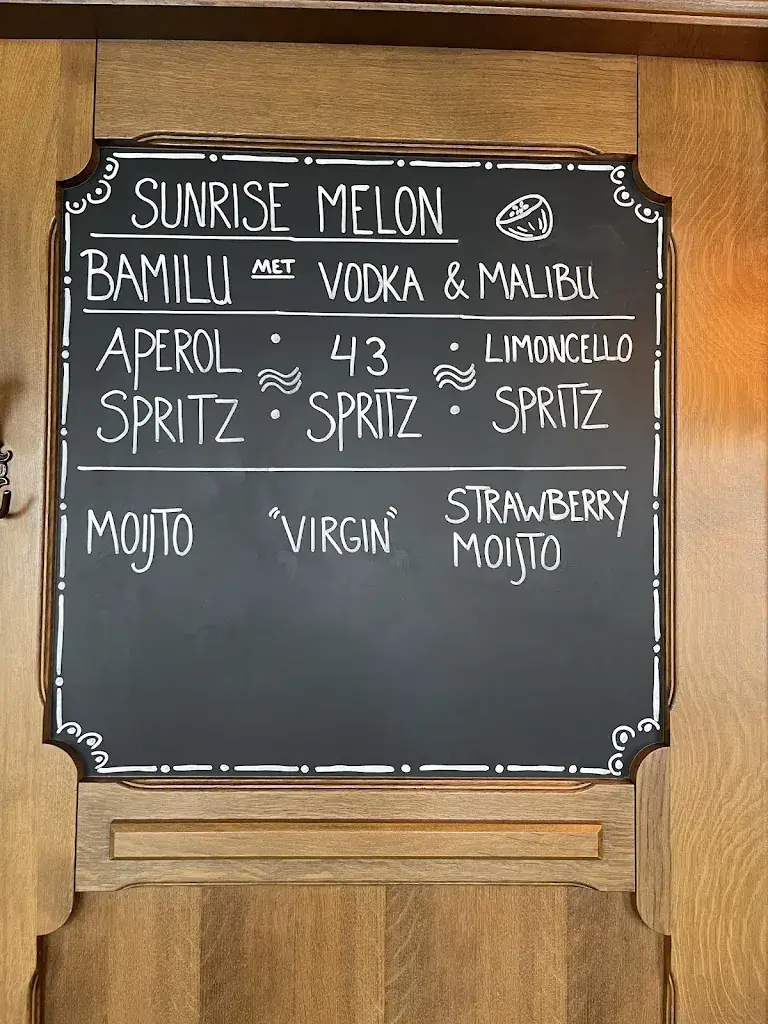 SUNRISE MELON
BAMILU MET VODKA & MALIBU
APEROL SPRITZ
43 SPRITZ
LIMONCELLO SPRITZ
MOIJTO
"VIRGIN"
STRAWBERRY
MOIJTO